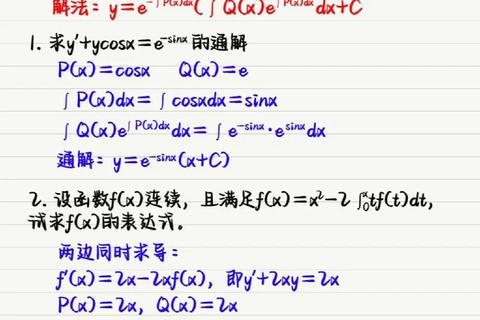 解法: y=e^-∫P(x)dx(∫Q(x)e^∫P(x)dx dx+C
1. 求y′+ycosx=e^-sinx的通解
P(x)=cosx Q(x)=e
∫P(x)dx=∫cosxdx=sinx
∫Q(x)e^∫P(x)dx dx=∫e^-sinx·e^sinx dx
通解: y=e^-sinx(x+C)
2. 设函数f(x)连续, 且满足f(x)=x²-2∫₀ˣtf(t)dt,
试求f(x)的表达式。
两边同时求导:
f′(x)=2x-2xf(x), 即y′+2xy=2x
P(x)=2x, Q(x)=2x